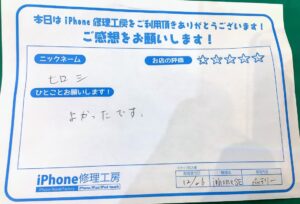 本日は iPhone 修理工房をご利用頂きありがとうございます!
ご感想をお願いします!
ニックネーム
お店の評価
ヒロシ
ひとことお願いします!
よかったです。
iPhone修理工房